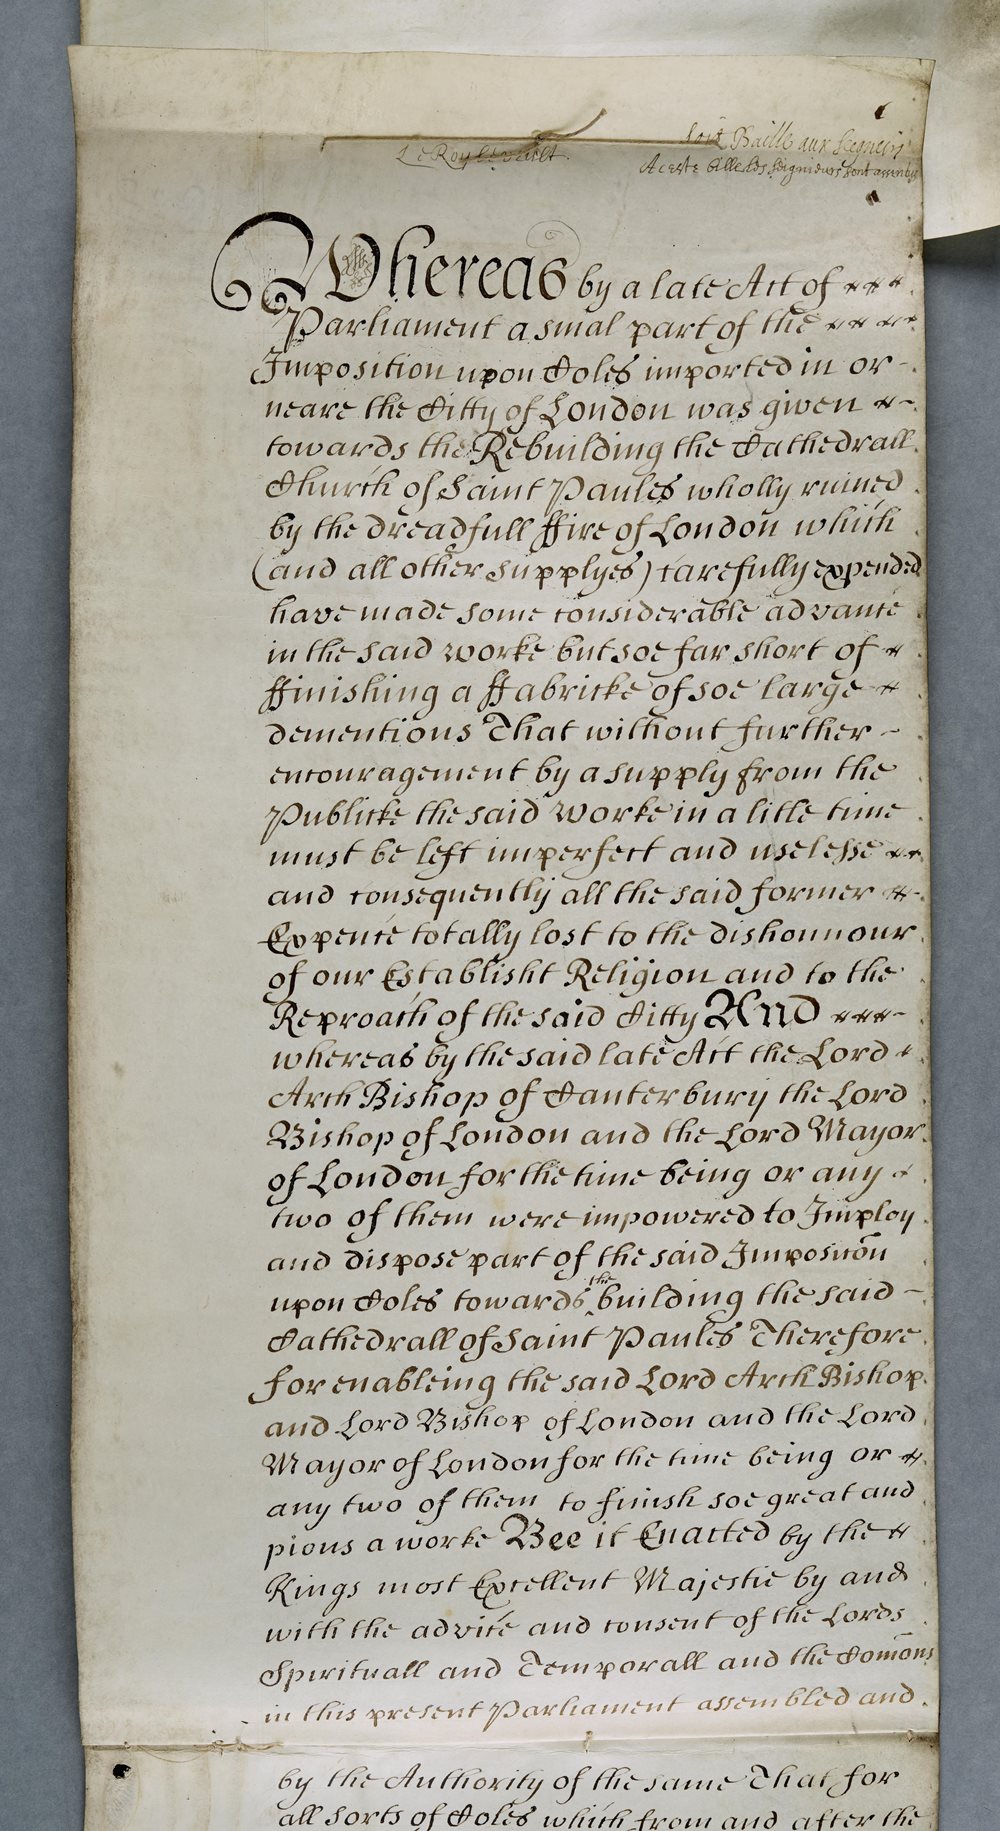 Soit Baille aux Seigneurs
Le Roy le veult
A ceste bille les Seigneurs sont assentus
Whereas by a late Act of
Parliament a smal part of the
Imposition upon Coles imported in or
neare the Citty of London was given
towards the Rebuilding the Cathedrall
Church of Saint Paules wholly ruined
by the dreadfull ffire of London which
(and all other supplyes) carefully expended
have made some considerable advance
in the said worke but soe far short of
ffinishing a ffabricke of soe large
dementions That without further
encouragement by a supply from the
Publicke the said worke in a litle time
must be left imperfect and uselesse
and consequently all the said former
Expence totally lost to the dishonnour
of our Establisht Religion and to the
Reproach of the said Citty And
whereas by the said late Act the Lord
Arch Bishop of Canterbury the Lord
Bishop of London and the Lord Mayor
of London for the time being or any
two of them were impowered to Imploy
and dispose part of the said Impositõn
upon Coles towards the building the said
Cathedrall of Saint Paules Therefore
for enableing the said Lord Arch Bishop
and Lord Bishop of London and the Lord
Mayor of London for the time being or
any two of them to finish soe great and
pious a worke Bee it Enacted by the
Kings most Excellent Majestie by and
with the advice and consent of the Lords
Spirituall and Temporall and the Com̃ons
in this present Parliament assembled and
by the Authority of the same That for
all sorts of Coles which from and after the